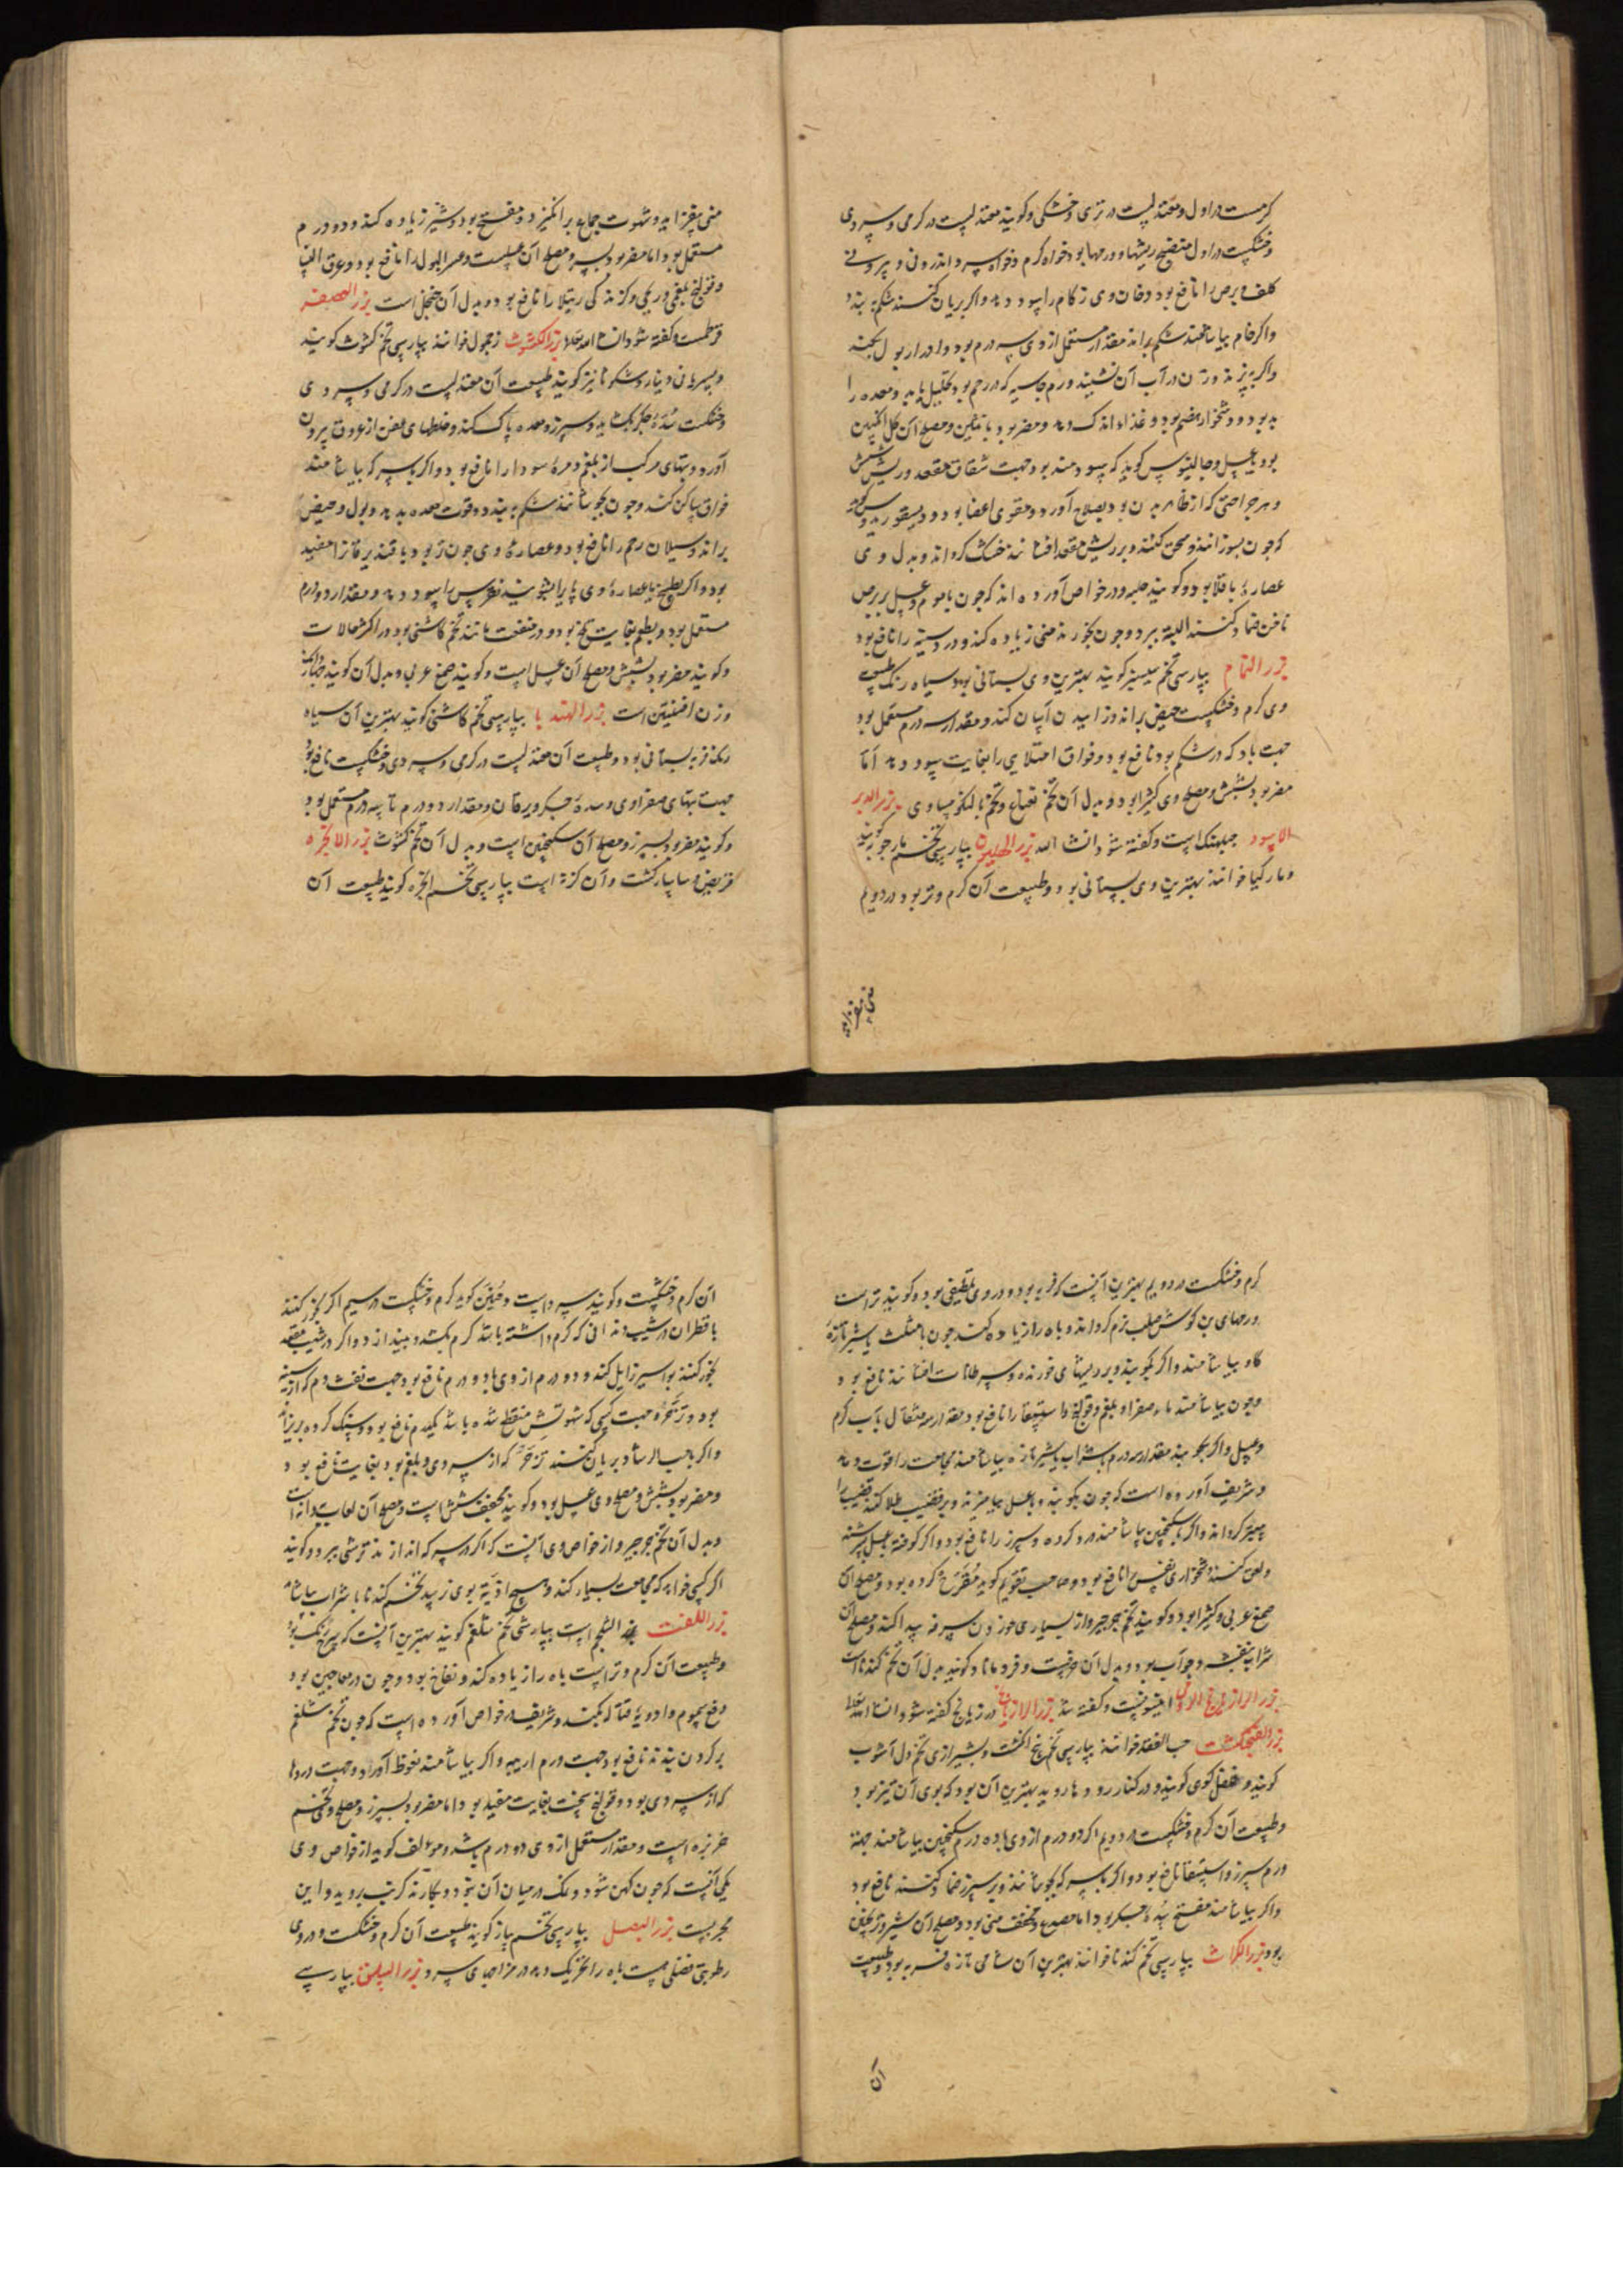 کرمست در اول و معتدلیست در تری و خشکی و کویند معتدلیست در کرمی و سردی
و خشکیست در اول منضج ریشها و ورمها بود خواه کرم و خواه سرد اندرونی و بیرونی
کلف و برص را نافع بود و دخان وی زکام را سود دهد و اکر بریان کنند شکم به بندد
و اکر خام بیاشامند شکم براند مقدار مستعمل از وی سه درم بود و ادرار بول بکند
و اکر به پزند و زن در آب آن نشیند ورم جاسیه که در رحم بود تحلیل یابد و معده را
بد بود و دشخوار هضم بود و غذاء اندک دهد و مضر بود بانثیین و مصلح آن کل انکبین
بود یا عسل و جالینوس کوید که سودمند بود جهت شقاق مقعد و ریش شش
و هر جراحتی که از ظاهر بدن بود بصلاح آورد و مقوی اعضا بود و دیسقوریدوس کوید
که چون بسوزانند و سحق کنند و بر ریش مقعد افشانند خشک کرداند و بدل وی
عصاره باقلا بود و کویند حلبه و در خواص آورده اند که چون با موم و عسل بر برص
ناخن ضماد کنند البته ببرد و چون بخورند منی زیاده کند و درد سینه را نافع بود
بزر النمام بپارسی تخم سیسنبر کویند بهترین وی بستانی بود سیاه رنک طبیعت
وی کرم و خشکیست حیض براند و زاییدن آسان کند و مقدار سه درم مستعمل بود
جهت باد که در شکم بود نافع بود و فواق امتلایی را بغایت سود دهد اما
مضر بود بشش و مصلح وی کثیرا بود و بدل آن تخم نعناع و تخم بالنکو مساوی بزر الدبر
الاسود جبلهنک است و کفته شود انشا الله بزر الهلیون بپارسی تخم مارچوبه کویند
و مار کیا خوانند بهترین وی بستانی بود و طبیعت آن کرم و تر بود در دویم
منی بیفزاید
منی بیفزاید و شهوت جماع برانکیزد و مفتح بود و شیر زیاده کند و دو درم
مستعمل بود اما مضر بود بسپرز و مصلح آن عسلست و عسر البول را نافع بود و عرق النسا
و قولنج بلغمی و ریحی و کزندکی رتیلا را نافع بود و بدل آن جنجل است بزر العصفر
قرطمست و کفته شود انشا الله تعالی بزر الکشوث زحمول خوانند بپارسی تخم کشوث کویند
و بسریانی دینار و شکوثا نیز کویند طبیعت آن معتدلیست در کرمی و سردی
و خشکست سده جکر بکشاید و سپرز و معده پاک کند و خلطهای عفن از عروق بیرون
آورد و تبهای مرکب از بلغم و مره سودا را نافع بود و اکر با سرکه بیاشامند
فواق ساکن کند و چون بجوشانند شکم به بندد و قوت معده بدهد و بول و حیض
براند و سیلان رحم را نافع بود و عصاره وی چون تر بود با قند یرقانرا مفید
بود و اکر بطبیخ یا عصاره وی پایرا بشویند نقرس را سود دهد و مقدار دو درم
مستعمل بود و بطعم بغایت تلخ بود و در منفعت مانند تخم کاسنی بود در اکثر حالات
و کویند مضر بود بشش و مصلح آن عسل است و کویند صمغ عربی و بدل آن کویند
وزن افسنتین است بزر الهندبا بپارسی تخم کاسنی کویند بهترین آن سیاه
رنک فربه بستانی بود و طبیعت آن معتدلیست در کرمی و سردی و خشکیست نافع بود
جهت تبهای صفراوی و سده جکر و یرقان و مقدار دو درم تا سه درم مستعمل بود
و کویند مضر بود بسپرز و مصلح آن سکنجبین است و بدل آن تخم کشوث بزر الانجره
قریض و ساسارکشت و آن کزنه است بپارسی تخم انجره کویند طبیعت آن
کرم و خشکست در دویم بهترین آنست که فربه بود و در وی تلطیفی بود و کویند تر است
ورمهای بن کوش صلب نرم کرداند و باه را زیاده کند چون با مثلث یا شیر تازه
کاو بیاشامند و اکر بکوبند و بر ریشهای خورنده و سرطانات افشانند نافع بود
و چون بیاشامند ماده صفرا و بلغم و قولنج و استسقا را نافع بود مقدار سه مثقال بآب کرم
و عسل و اکر بکوبند مقدار سه درم با شراب یا شیر تازه بیاشامند مجامعت را قوت دهد
و شریف آورده است که چون بکوبند و با عسل بیامیزند و بر قضیب طلا کنند قضیب را
ستبر کرداند و اکر با سکنجبین بیاشامند درد کرده و سپرز را نافع بود و اکر کوفته بعسل بسرشند
و لعق کنند دشخواری نفس را نافع بود و صاحب تقویم کوید مقرح کرده بود و مصلح آن
صمغ عربی و کثیرا بود و کویند تخم جرجیر و از بسیاری خوردن سرفه پیدا کند و مصلح آن
شراب بنفشه و جوآب بود و بدل آن حرفست و قردمانا و کویند بدل آن تخم کندناست
بزر الرازیانج الرومی انیسونست و کفته شد بزر الرازیانج در رازیانج کفته شود انشا الله تعالی
بزر الفنجنکشت حب الفقد خوانند بپارسی تخم پنج انکشت و بشیرازی تخم دل آشوب
کویند و فلفل کوهی کویند و در کنار رودها روید بهترین آن بود که بوی آن تیز بود
و طبیعت آن کرم و خشکیست در دویم اکر دو درم از وی با ده درم سکنجبین بیاشامند جهة
ورم سپرز و استسقا نافع بود و اکر با سرکه بجوشانند و بر سپرز ضماد کنند نافع بود
و اکر بیاشامند مفتح سده جکر بود اما مصدع و مخفف منی بود و مصلح آن شیر و تر
بود بزر الکراث بپارسی تخم کندنا خوانند بهترین آن شامی تازه فربه بود طبیعت
آن
آن کرم و خشکیست و کویند سرد است و حنین کوید کرم و خشکیست در سیم اکر بخور کنند
با قطران در شیب دندانی که کرم داشته باشد کرم بکشد و بیندازد و اکر در شیب مقعد
بخور کنند بواسیر زایل کند و دو درم از وی با دو درم نافع بود جهت نفث دم که از سینه
بود و زحیر و جهت کسی که شهوتش منقطع شده باشد یکدم نافع بود و سنک کرده بریزاند
و اکر با حب الرشاد بریان کنند تزحر که از سردی و بلغم بود بغایت نافع بود
و مضر بود بشش و مصلح وی عسل بود و کویند مجفف شش است و مصلح آن لعاب دانه است
و بدل آن تخم جرجیر و از خواص وی آنست که اکر در سرکه اندازند ترشی ببرد و کویند
اکر کسی خواهد که مجامعت بسیار کند و هیچ اذیتی بوی نرسد تخم کندنا با شراب بیاشامد
بزر اللفت بزر الشلجم است بپارسی تخم شلغم کویند بهترین آنست که سرخ رنک بود
و طبیعت آن کرم و تر است باه را زیاده کند و نفاخ بود و چون در معاجین بود
دفع سموم و ادویه قتاله بکند و شریف در خواص آورده است که چون تخم شلغم
بر کردن بندند نافع بود جهت ورم اربیه و اکر بیاشامند نعوظ آورد و جهت دردها
که از سردی بود و قولنج سخت بغایت مفید بود اما مضر بود بسپرز و مصلح وی تخم
خربزه است و مقدار مستعمل از وی دو درم باشد و مؤلف کوید از خواص وی
یکی آنست که چون کهن شود و نمک در میان آن بود و بکارند کرنب بروید و این
مجربست بزر البصل بپارسی تخم پیاز کویند طبیعت آن کرم و خشکست و در وی
رطوبتی فضلی هست باه را تحریک دهد در مزاجهای سرد بزر السلق بپارسی